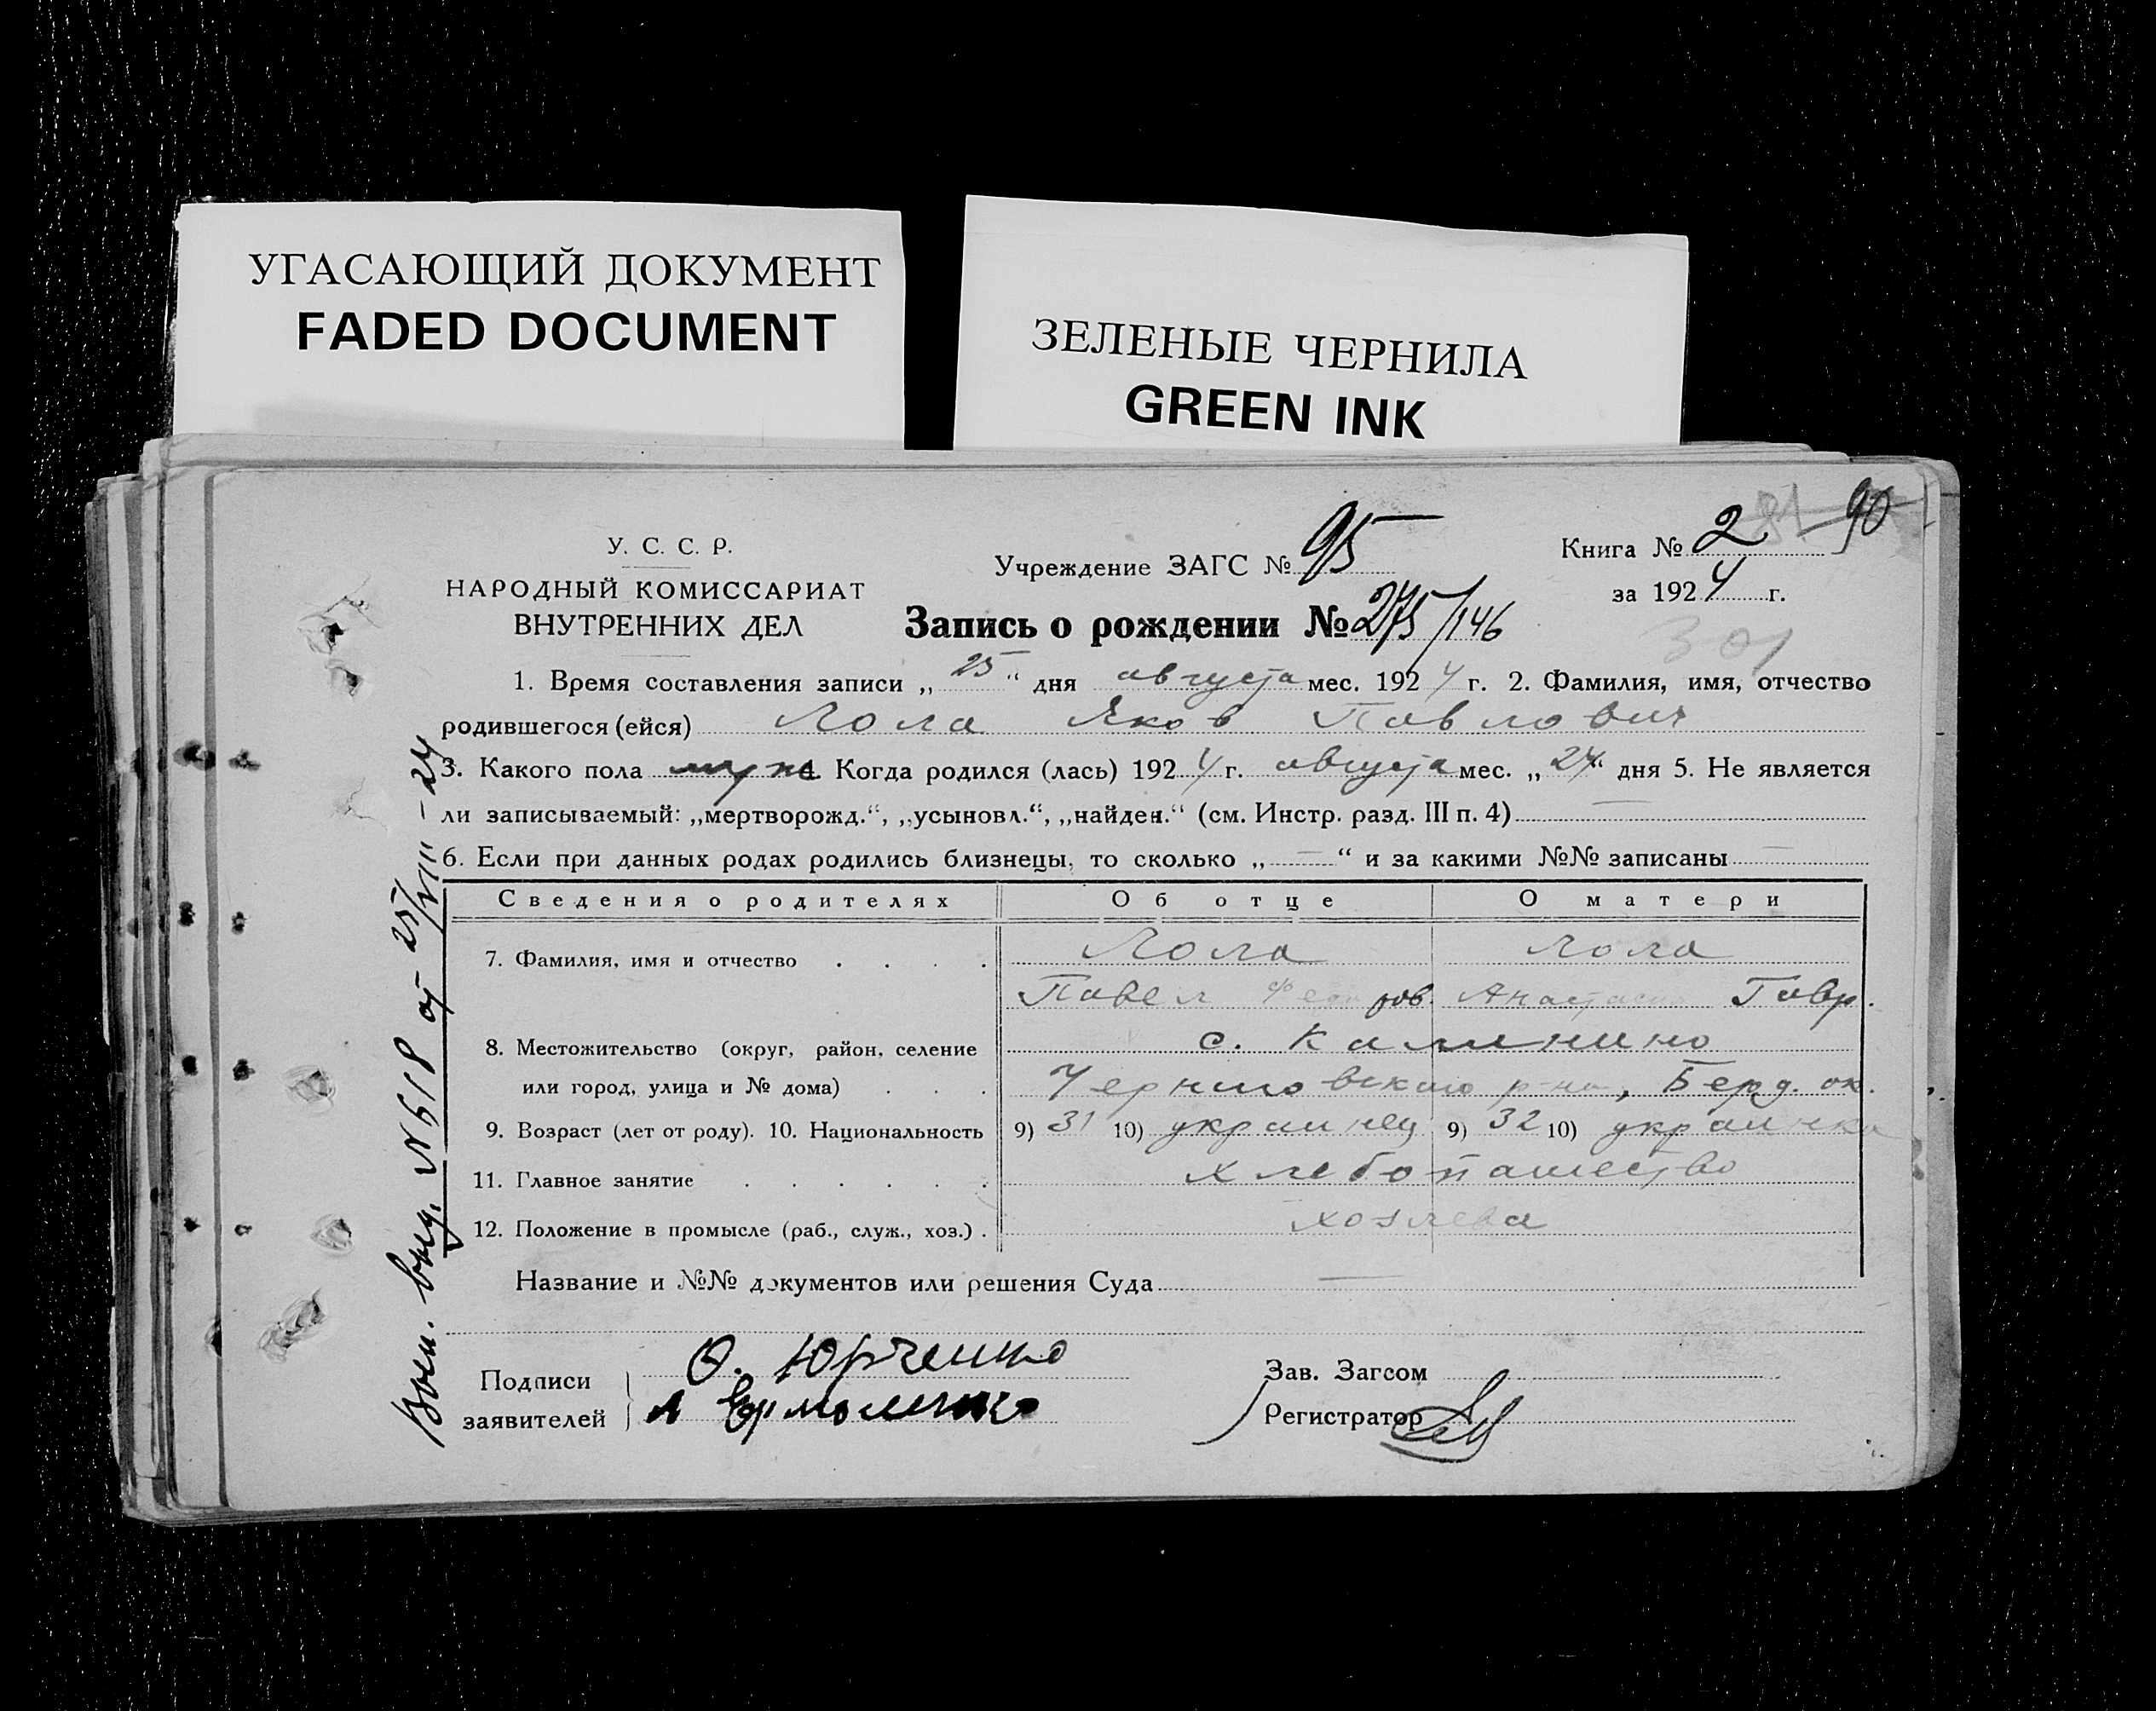 УГАСАЮЩИЙ ДОКУМЕНТ
FADED DOCUMENT
ЗЕЛЕНЫЕ ЧЕРНИЛА
GREEN INK
90
У. С. С. Р.
НАРОДНЫЙ КОМИССАРИАТ
ВНУТРЕННИХ ДЕЛ
Учреждение ЗАГС № 95
Книга № 2
за 1924 г.
Запись о рождении № 275/146
301
1. Время составления записи „25“ дня августа мес. 1924 г. 2. Фамилия, имя, отчество
родившегося (ейся) Лола Яков Павлович
3. Какого пола муж 4. Когда родился (лась) 1924 г. августа мес. „24“ дня 5. Не является
ли записываемый: „мертворожд.“, „усыновл.“, „найден.“ (см. Инстр. разд. III п. 4) —
6. Если при данных родах родились близнецы, то сколько „—“ и за какими №№ записаны —
Сведения о родителях Об отце О матери
7. Фамилия, имя и отчество . . . . Лола Лола
Павел Федоров. Анастасия Гавр.
8. Местожительство (округ, район, селение с. Калинино
или город, улица и № дома) . . . Черниговского р-на, Берд. ок.
9. Возраст (лет от роду). 10. Национальность 9) 31 10) украинец 9) 32 10) украинка
11. Главное занятие . . . . . . хлебопашество
12. Положение в промысле (раб., служ., хоз.) . хозяева
Название и №№ документов или решения Суда —
Подписи
заявителей
О. Юрченко
Л Ермоленко
Зав. Загсом
Регистратор
выд. №518 от 25/VIII–24